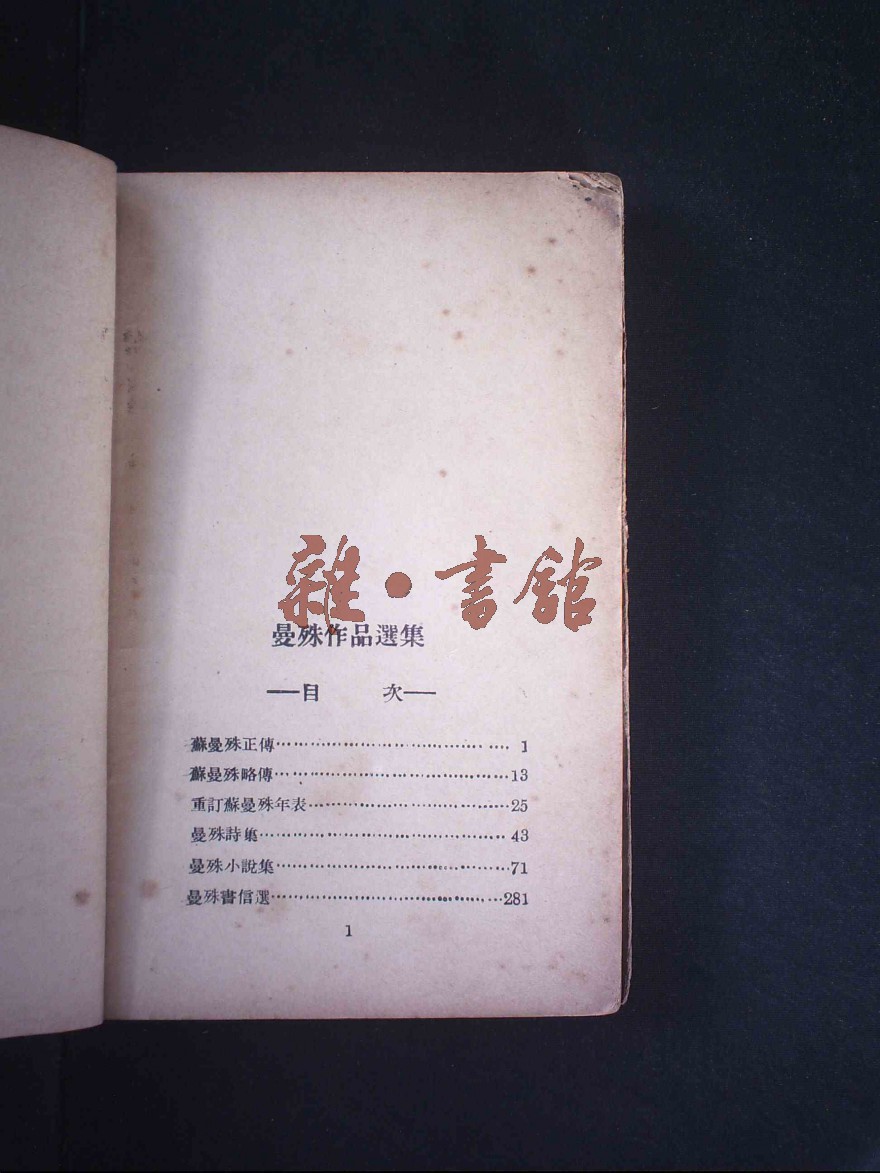 雜•書館
曼殊作品選集
——目　次——
蘇曼殊正傳…………………………………… 1
蘇曼殊略傳……………………………………13
重訂蘇曼殊年表………………………………25
曼殊詩集………………………………………43
曼殊小說集……………………………………71
曼殊書信選……………………………………281
1